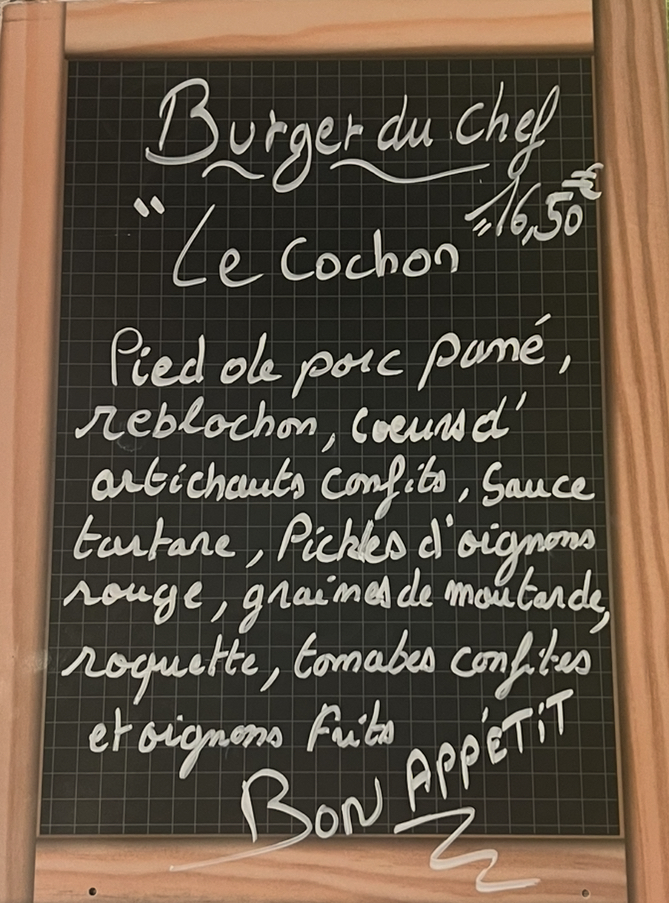 Burger du chef
16,50€
"Le Cochon"
Pied de porc pané,
reblochon, coeurs d'
artichauts confits, Sauce
tartare, Pickles d'oignons
rouge, graines de moutarde,
roquette, tomates confites
et oignons frits
BON APPÉTIT